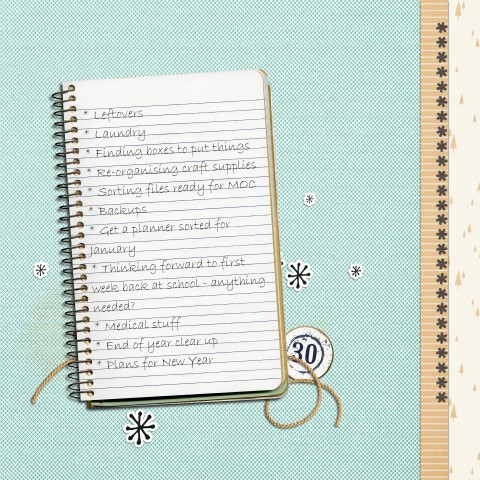 * Leftovers
* Laundry
* Finding boxes to put things
* Re-organising craft supplies
* Sorting files ready for MOC
* Backups
* Get a planner sorted for
January
* Thinking forward to first
week back at school - anything
needed?
* Medical stuff
* End of year clear up
* Plans for New Year
30